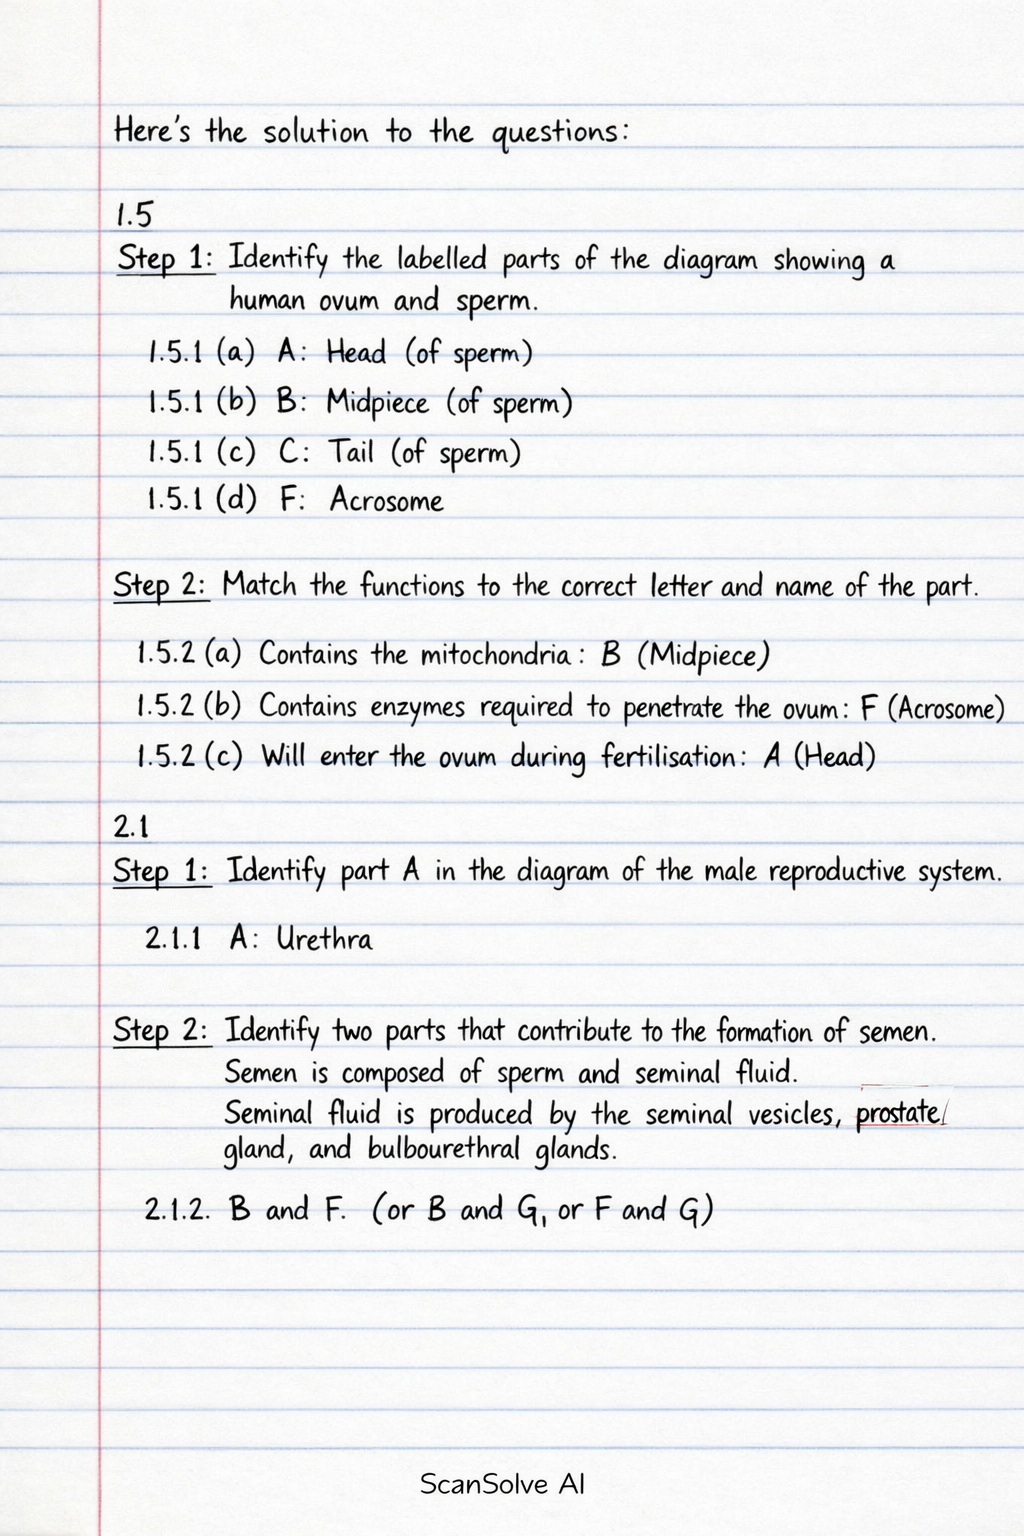 Here's the solution to the questions:
1.5
Step 1: Identify the labelled parts of the diagram showing a
human ovum and sperm.
1.5.1 (a) A: Head (of sperm)
1.5.1 (b) B: Midpiece (of sperm)
1.5.1 (c) C: Tail (of sperm)
1.5.1 (d) F: Acrosome
Step 2: Match the functions to the correct letter and name of the part.
1.5.2 (a) Contains the mitochondria: B (Midpiece)
1.5.2 (b) Contains enzymes required to penetrate the ovum: F (Acrosome)
1.5.2 (c) Will enter the ovum during fertilisation: A (Head)
2.1
Step 1: Identify part A in the diagram of the male reproductive system.
2.1.1 A: Urethra
Step 2: Identify two parts that contribute to the formation of semen.
Semen is composed of sperm and seminal fluid.
Seminal fluid is produced by the seminal vesicles, prostate
gland, and bulbourethral glands.
2.1.2. B and F. (or B and G, or F and G)
ScanSolve AI